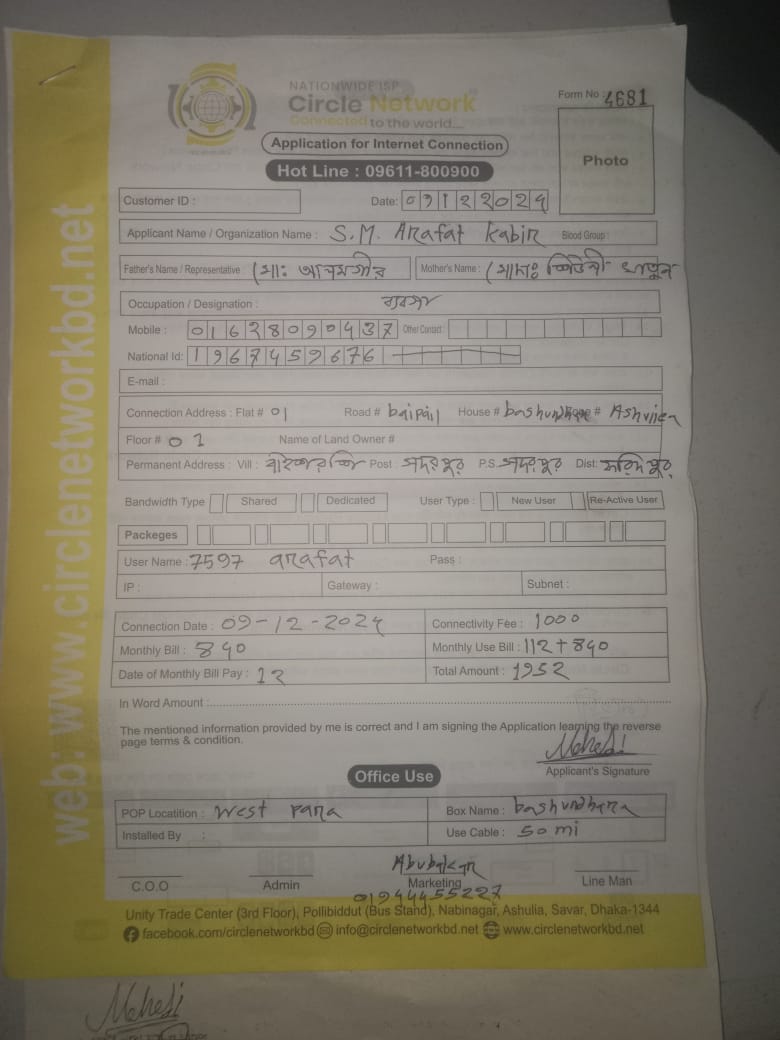 NATIONWIDE ISP
Circle Network
Connected to the world....
Form No : 4681
Application for Internet Connection
Hot Line : 09611-800900
Photo
Customer ID :
Date: 09122024
Applicant Name / Organization Name : S.M. Arafat Kabir Blood Group :
Father's Name / Representative : মোঃ আলমগীর Mother's Name : মোসাঃ শিউলী খাতুন
Occupation / Designation : ব্যবসা
Mobile : 01638090437 Other Contact :
National Id: 1967459676
E-mail :
Connection Address : Flat # 01 Road # baipail House # bashundhara # Ashulia
Floor # 01 Name of Land Owner #
Permanent Address : Vill : Post : সদরপুর P.S. সদরপুর Dist: ফরিদপুর
Bandwidth Type Shared Dedicated User Type : New User Re-Active User
Packeges
User Name : 7597 arafat Pass :
IP : Gateway : Subnet :
Connection Date : 09-12-2024 Connectivity Fee : 1000
Monthly Bill : 840 Monthly Use Bill : 112 + 840
Date of Monthly Bill Pay : 12 Total Amount : 1952
In Word Amount :
The mentioned information provided by me is correct and I am signing the Application learning the reverse
page terms & condition.
Mehedi
Applicant's Signature
Office Use
POP Locatition : West para Box Name : bashundhara
Installed By : Use Cable : 50 mi
Abubakar
C.O.O Admin Marketing Line Man
01944455227
Unity Trade Center (3rd Floor), Pollibiddut (Bus Stand), Nabinagar, Ashulia, Savar, Dhaka-1344
facebook.com/circlenetworkbd info@circlenetworkbd.net www.circlenetworkbd.net
web: www.circlenetworkbd.net
Mehedi